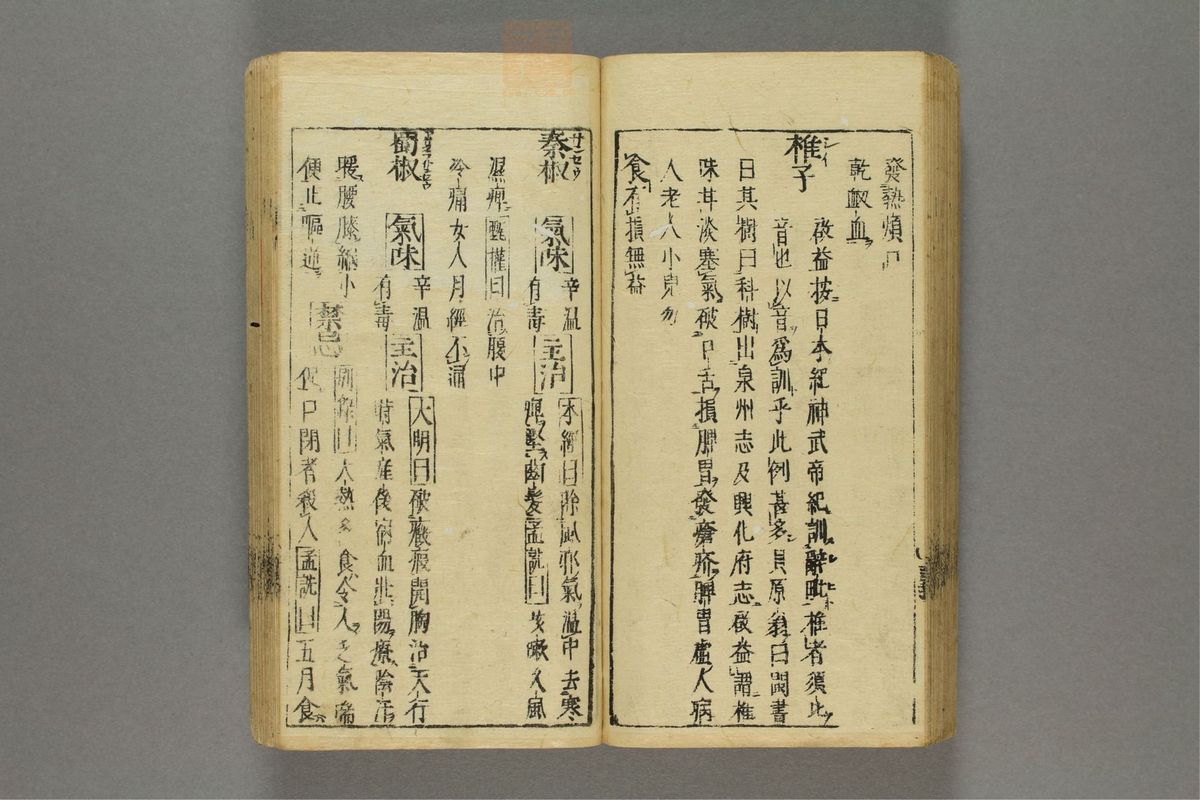 發熱煩口
乾衂血
椎子
啟益按日本紀神武帝紀訓辭 椎者須此
音也以音爲訓乎此例甚多貝原翁曰閩書
曰其樹曰科樹出泉州志及興化府志啟益謂椎
味甘淡塞氣破口舌損脾胃發瘡疥脾胃虛人病
人老人小兒勿
食有損無益
秦椒
氣味 辛溫
有毒
主治 本經曰除風邪氣溫中去寒
痺堅齒髮孟詵曰 嗽久風
濕痺甄權曰治腹中
冷痛女人月經不通
蜀椒
氣味 辛溫
有毒
主治 大明曰破癥瘕開胸治天行
時氣產後宿血壯陽療陰汗
暖腰膝縮小
便止嘔逆
禁忌 大熱多食令人乏氣喘
促口閉者殺人孟詵曰五月食